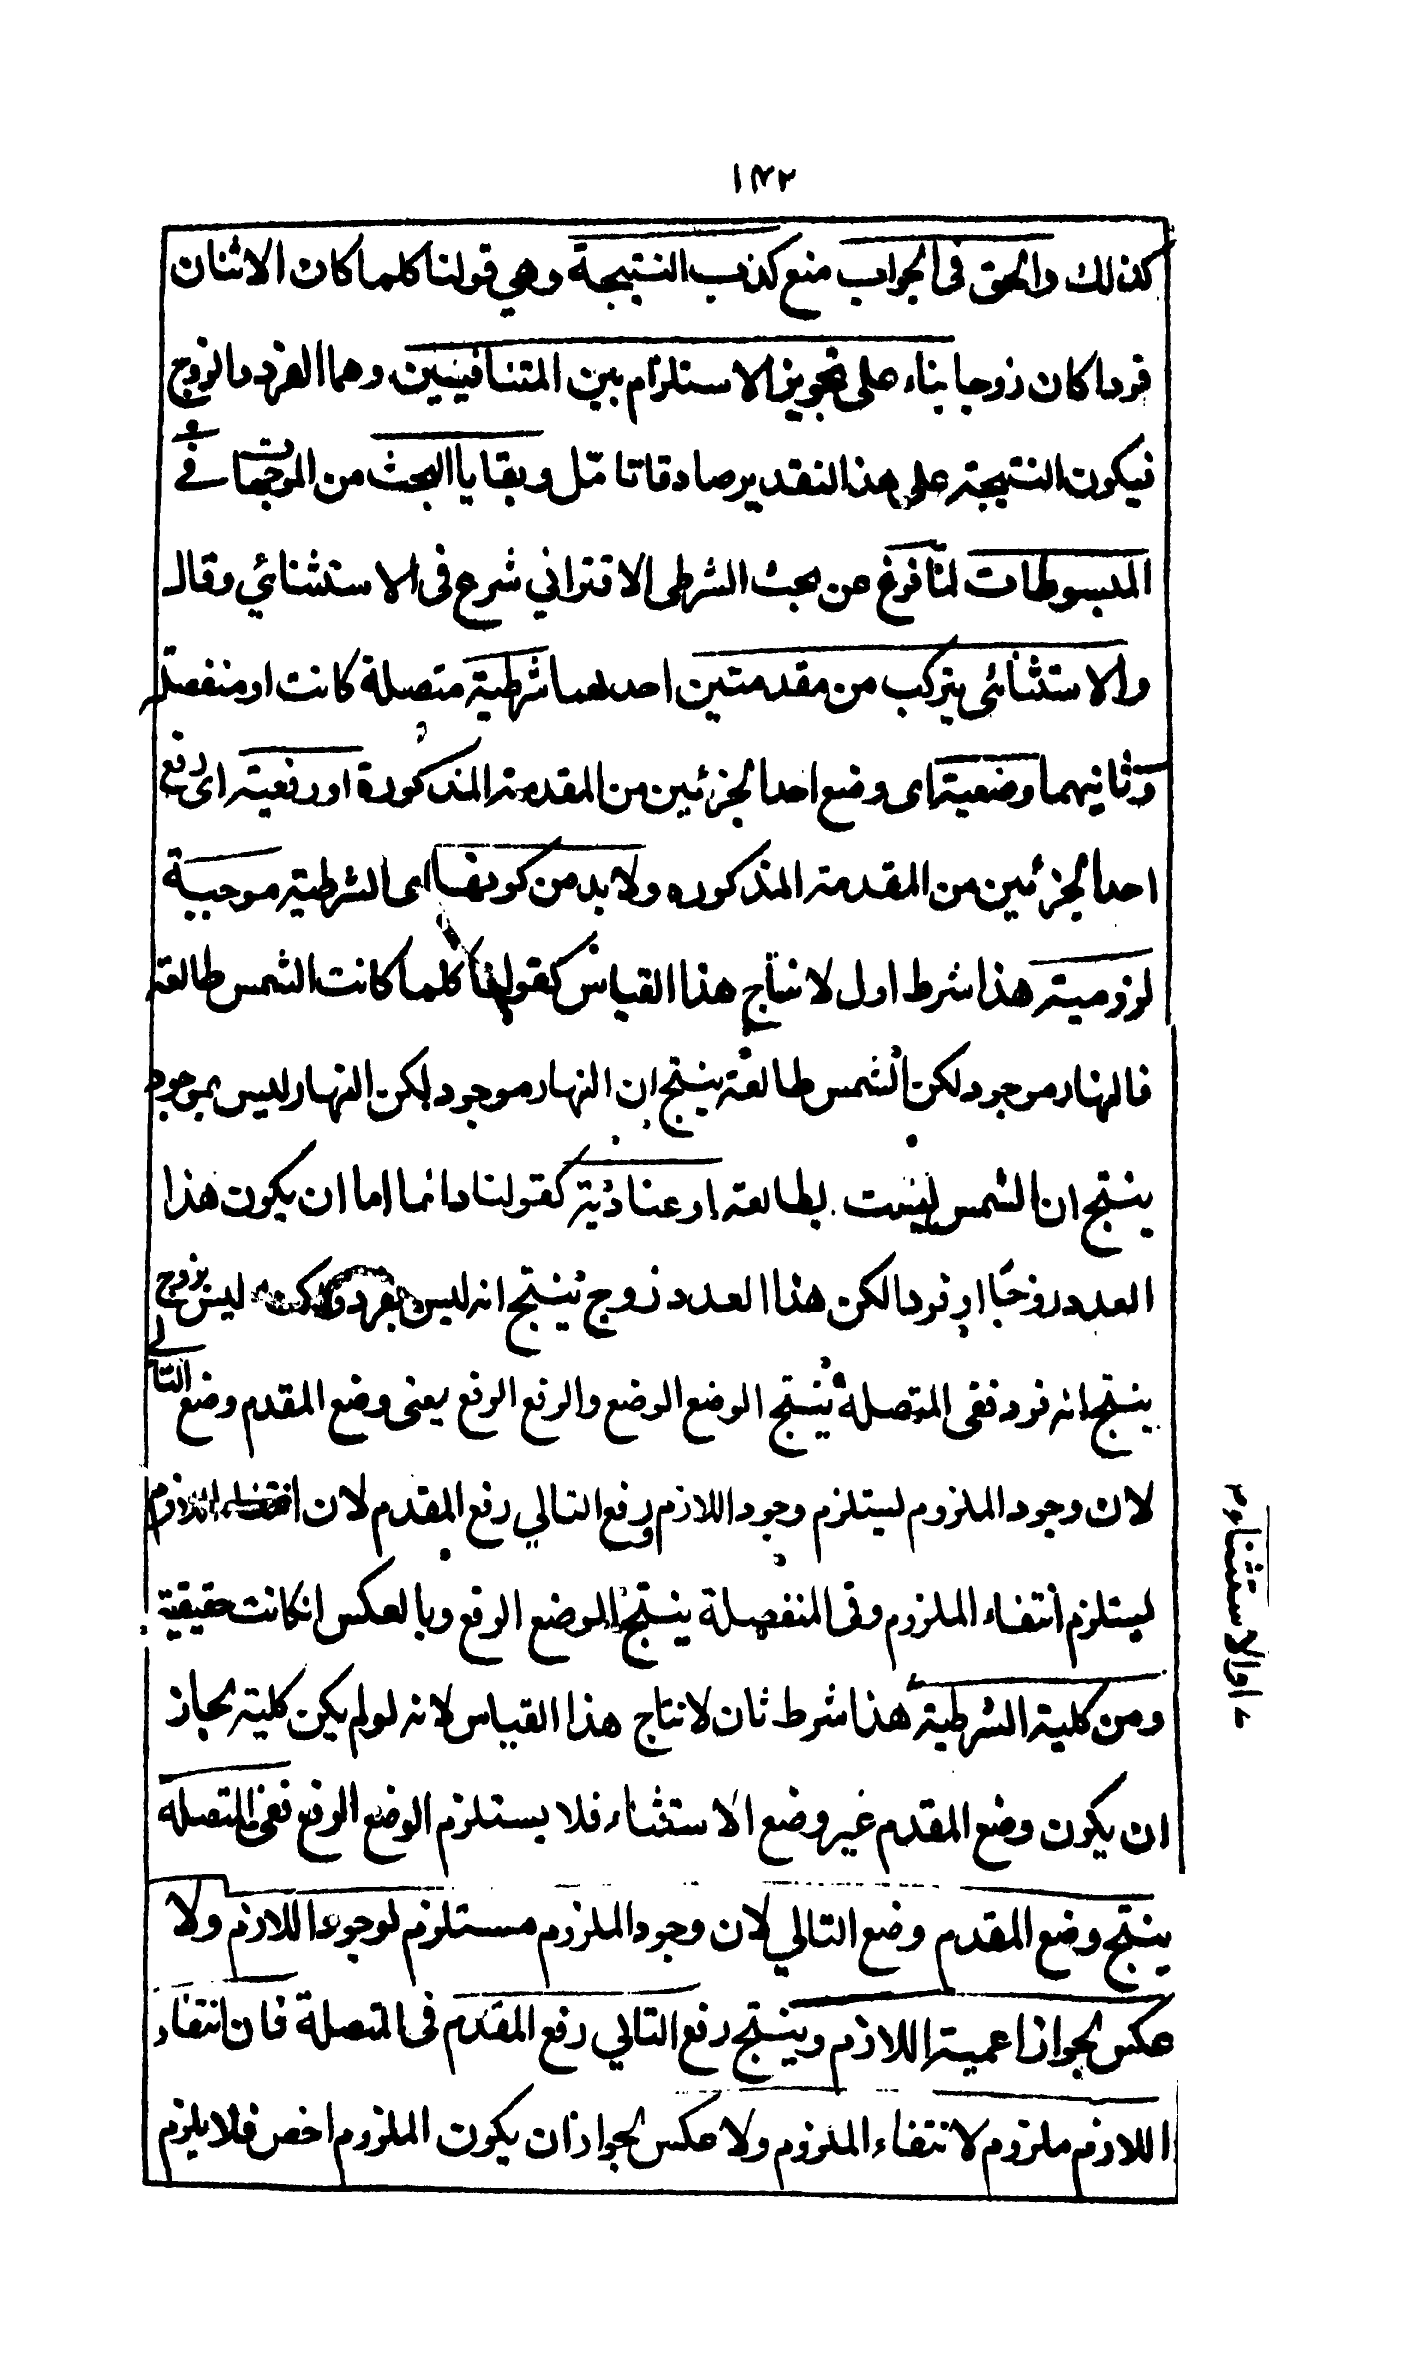 ١٤٢
كذلك والحق فى الجواب منع كذب النتيجة وهي قولنا كلما كان الاثنان
فردا كان زوجا بناء على تجويز الاستلزام بين المتنافيين وهما الفرد والزوج
فيكون النتيجة على هذا التقدير صادقا تأمّل وبقايا البحث من الموجهات في
المبسوطات لمّا فرغ عن بحث الشرطى الاقتراني شرع فى الاستثنائي وقال
والاستثنائى يتركب من مقدمتين احدهما شرطية متصلة كانت او منفصلة
وثانيهما وضعية اى وضع احد الجزئين من المقدمة المذكورة او رفعية اى رفع
احد الجزئين من المقدمة المذكوره ولا بد من كونها اى الشرطية موجبة
لزومية هذا شرط اول لانتاج هذا القياس كقولنا كلما كانت الشمس طالعة
فالنهار موجود لكن الشمس طالعة ينتج ان النهار موجود لكن النهار ليس بموجود
ينتج ان الشمس ليست بطالعة او عنادية كقولنا دائما اما ان يكون هذا
العدد زوجًا او فردا لكن هذا العدد زوج ينتج انه ليس بفرد ولكنه ليس بزوج
ينتج انه فرد ففى المتصلة ينتج الوضع الوضع والرفع الرفع يعنى وضع المقدم وضع التالي
لان وجود الملزوم ليستلزم وجود اللازم ورفع التالي رفع المقدم لان انتفاء اللازم
ليستلزم انتفاء الملزوم وفى المنفصلة ينتج الوضع الرفع وبالعكس انكانت حقيقية
ومن كلية الشرطية هذا شرط ثان لانتاج هذا القياس لانه لو لم يكن كلية لجاز
ان يكون وضع المقدم غير وضع الاستثناء فلا يستلزم الوضع الرفع ففى المتصله
ينتج وضع المقدم وضع التالي لان وجود الملزوم مستلزم لوجود اللازم ولا
عكس لجواز اعمية اللازم وينتج رفع التالي رفع المقدم فى المتصلة فان انتفاء
اللازم ملزوم لانتفاء الملزوم ولا عكس لجواز ان يكون الملزوم اخص فلا يلزم
او الاستثناء